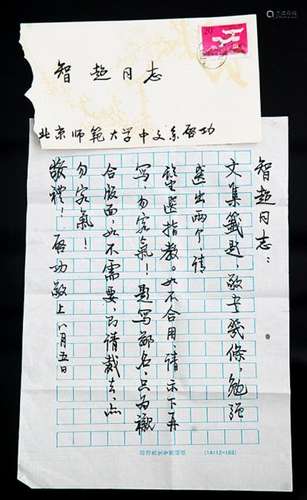 智超同志
北京师范大学中文系启功
智超同志：
文集籤题，敬书几条，勉强
选出两个，请
鉴选指教。如不合用，请示下再
写，勿客气！题写鄙名只为衬
合版面，如不需要，即请裁去，点
勿客气！
敬礼！
启功敬上 八月五日